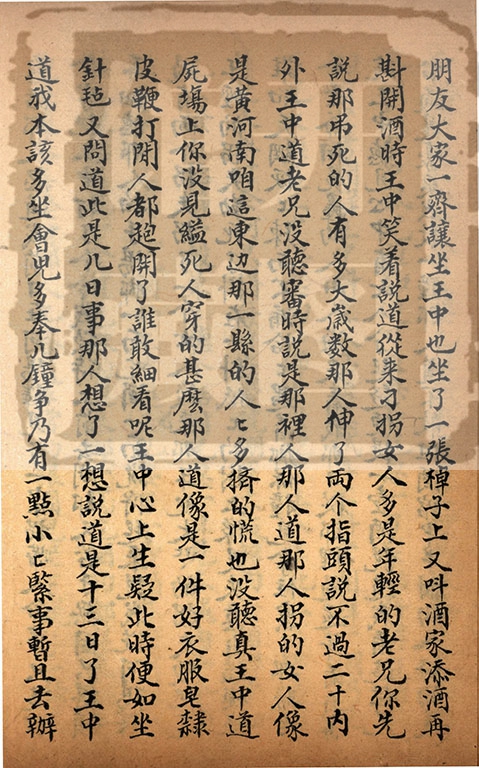 朋友大家一齊讓坐王中也坐了一張棹子上又呌酒家添酒再
斟開酒時王中笑着說道從来刁拐女人多是年輕的老兄你先
說那吊死的人有多大歲数那人伸了两个指頭說不過二十内
外王中道老兄没聽審時說是那裡人那人道那人拐的女人像
是黄河南咱這東边那一縣的人匕多擠的慌也没聽真王中道
屍塲上你没見縊死人穿的甚麽那人道像是一件好衣服皂隸
皮鞭打閒人都跑開了誰敢細看呢王中心上生疑此時便如坐
針毡又問道此是几日事那人想了一想說道是十三日了王中
道我本該多坐會兒多奉几鐘争乃有一點小匕緊事暫且去辦